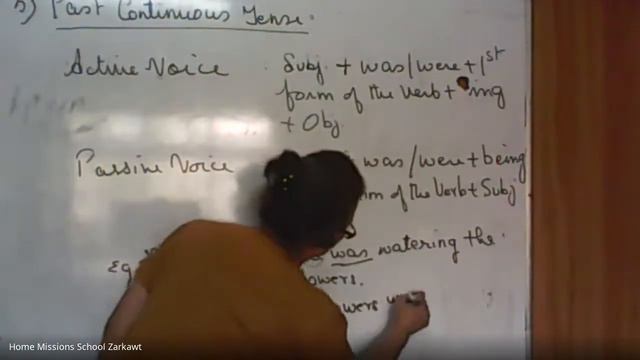 5) Past Continuous Tense.
Active Voice Subj + was/were + 1st
form of the verb + ing
+ Obj.
Passive Voice was/were + being
of the Verb + Subj
Eg was watering the
Home Missions School Zarkawt